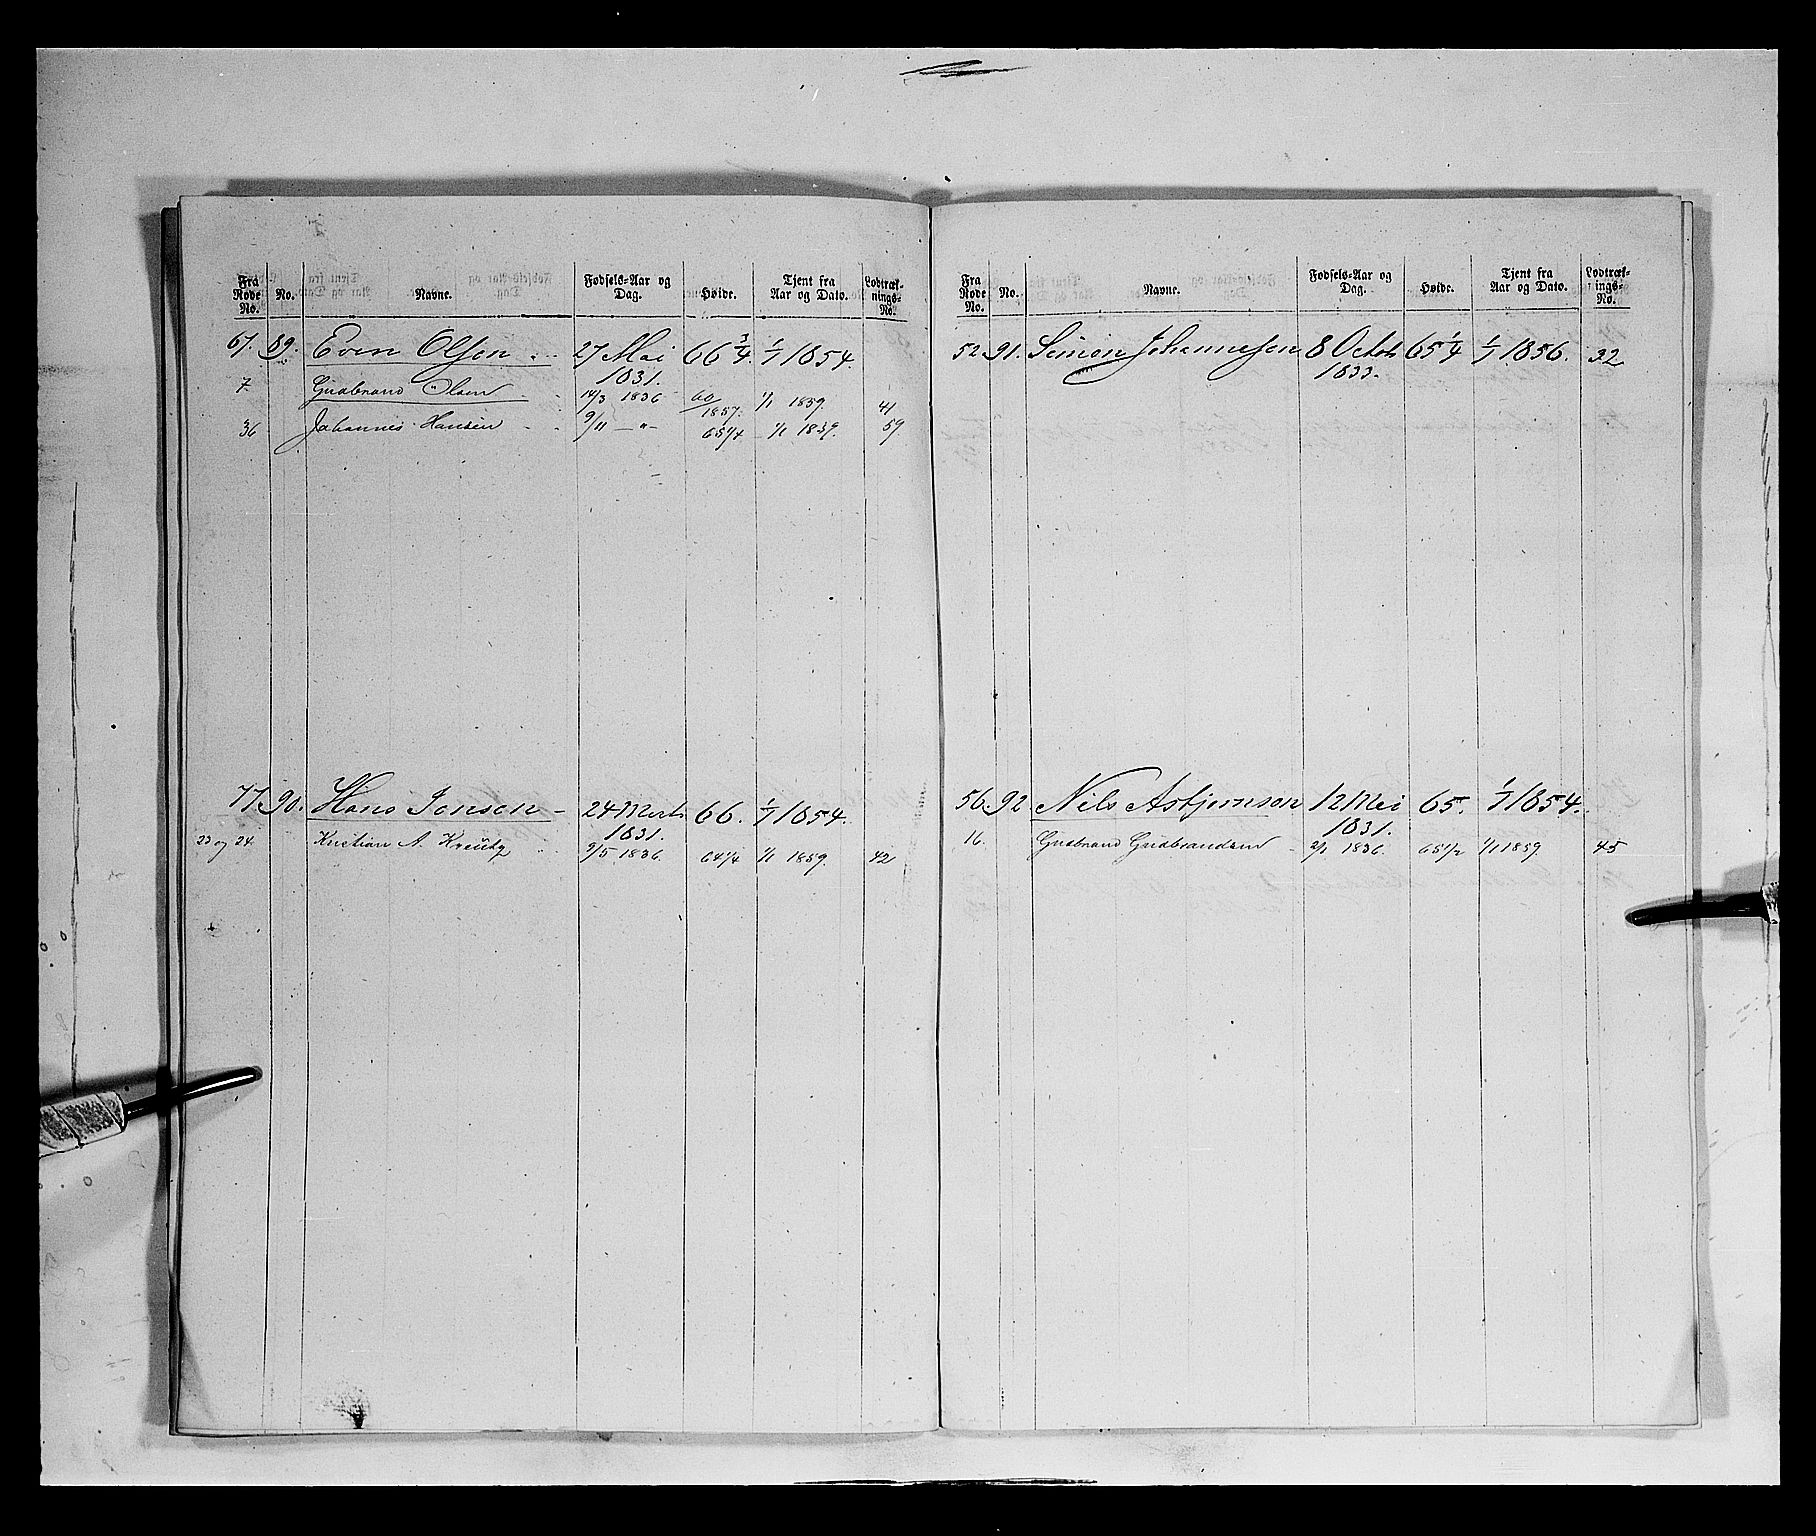 Fra Rode No. No. Navne. Fødsels-Aar og Dag. Høide. Tjent fra Aar og Dato. Lodtræk-nings-No.
67. 89. Even Olsen 27 Mai 1831. 66 3/4 1/7 1854.
7 Gudbrand Olsen 14/3 1836 60/1857. 1/1 1859. 41
36 Johannes Hansen 9/11 — " — 65 1/4 1/1 1859. 59
77. 90. Hans Jonsen 24 Marts 1831. 66. 1/7 1854.
23 og 24. Kristian A. Kreütz 9/5 1836. 64 1/4 1/1 1859. 42
Fra Rode No. No. Navne. Fødsels-Aar og Dag. Høide. Tjent fra Aar og Dato. Lodtræk-nings-No.
52. 91. Simon Johannesen 8 Octob 1833. 65 1/4 1/7 1856. 32
56. 92. Nils Asbjørnsen 12 Mei 1831. 65. 1/7 1854.
16. Gudbrand Gudbrandsen 2/1 1836. 65 1/2 1/1 1859. 45